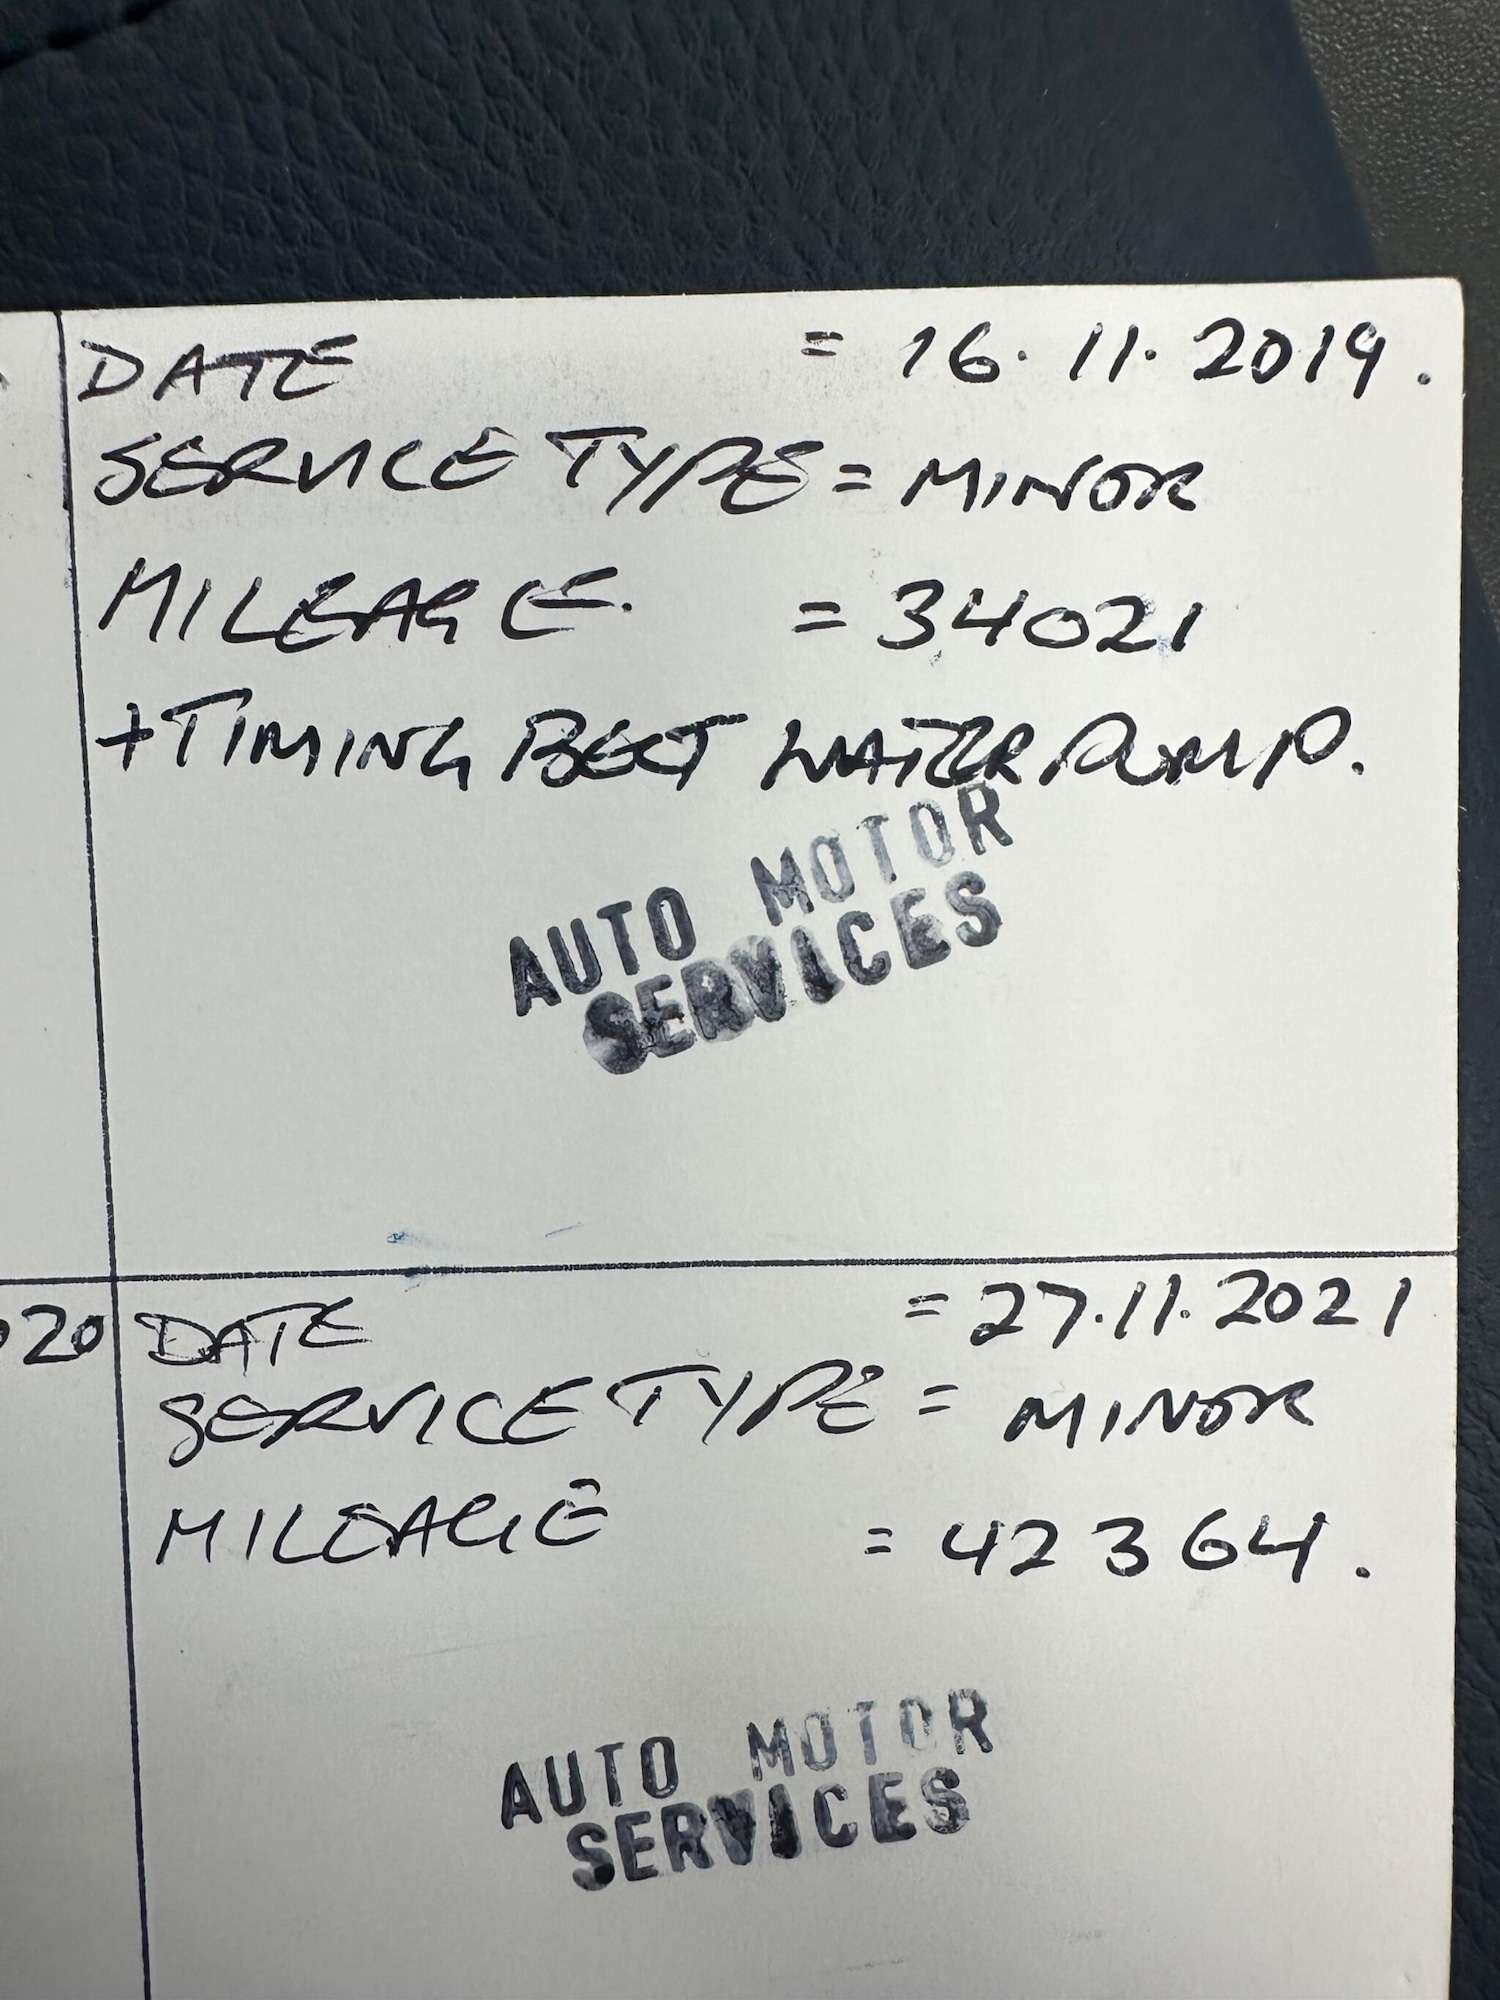 DATE = 16.11.2019.
SERVICE TYPE = MINOR
MILEAGE. = 34021
+TIMING BELT WATER PUMP.
AUTO MOTOR
SERVICES
20
DATE = 27.11.2021
SERVICE TYPE = MINOR
MILEAGE = 42364.
AUTO MOTOR
SERVICES